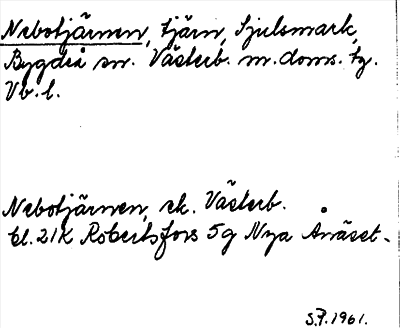 Nebotjärnen, tjärn, Sjulsmark,
Bygdeå sn. Västerb. m. doms. tg.
Vb. l.
Nebotjärnen, ek. Västerb.
bl. 21K Robertsfors 5g Nya Ånäset.
S.F. 1961.